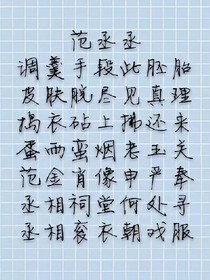 范丞丞
调羹手段此胚胎
皮肤脱尽见真理
捣衣砧上拂还来
蛋两蛮烟老玉关
范金肖像申严奉
丞相祠堂何处寻
丞相衮衣朝戏服